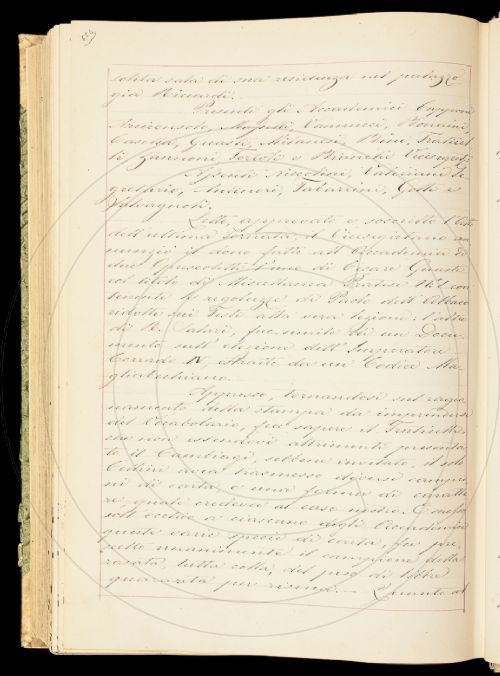 solita sala di sua residenza nel palazzo
già Riccardi.
Presenti gli Accademici Capponi
Arcangeli, Vannucci, Bonaini,
Casella, Guasti, Milanesi, Bini, Fraticel-
li Zannoni Tortoli e Bianchi Vicesegret:
Assenti Niccolini, Valeriani Se-
gretario, Antinori, Tabarrini, Gotti e
Salvagnoli.
Letto approvato e soscritto l'Atto
dell'ultima Tornata, il Vicesegretario an-
nunziò il dono fatto all'Accademia di
due Opuscoletti l'uno di Cesare Guasti
col titolo di Miscellanea Pratese N.1 con-
tenente le regoluzze di Paolo dell'Abbaco
ridotte nei Testi alla vera lezione: l'altro
di fac-simile di un Docu-
mento sull'unione dell'Imperatore
Corrado IV, estratto da un Codice Ma-
gliabechiano.
Appresso, tornandosi sul ragio-
namento della stampa da imprimersi
del Vocabolario, fece sapere il Fraticelli,
che non essendovi altrimenti presenta-
to il Cambiagi, sebbene invitato, il solo
Cellini avea trasmesso diversi campio-
ni di carta e una forma di caratte-
re quali credeva al caso nostro. E messe
sott'occhio a ciascuno degli Accademici
queste varie specie di carta, fu pre-
scelto unanimemente il campione della
rasata, tutta colla, del peso di libbre
quaranta per risma. — Quanto al